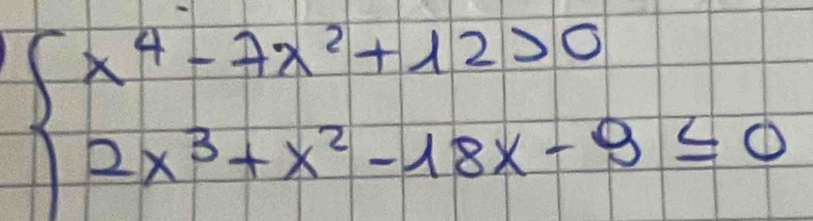 x⁴ - 7x² + 12 > 0
2x³ + x² - 18x - 9 ≤ 0